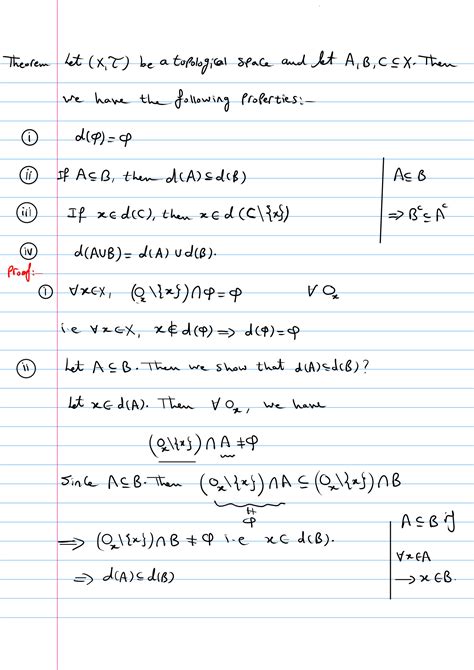 Theorem Let (X,τ) be a topological space and let A,B,C ⊆ X. Then
we have the following Properties:-
(i) d(φ)=φ
(ii) If A⊆B, then d(A)⊆d(B)
A⊆B
(iii) If x∈d(C), then x∈d(C\{x})
⇒ B^c ⊆ A^c
(iv) d(A∪B)= d(A)∪d(B).
Proof:-
(i) ∀x∈X, (O_x\{x})∩φ=φ ∀ O_x
i.e ∀x∈X, x∉d(φ) ⇒ d(φ)=φ
(ii) Let A⊆B. Then we show that d(A)⊆d(B)?
Let x∈d(A). Then ∀ O_x, we have
(O_x\{x})∩A ≠φ
Since A⊆B. Then (O_x\{x})∩A ⊆ (O_x\{x})∩B
≠
φ
⇒ (O_x\{x})∩B ≠ φ i.e x∈ d(B).
⇒ d(A)⊆d(B)
A⊆B if
∀x∈A
→ x∈B.